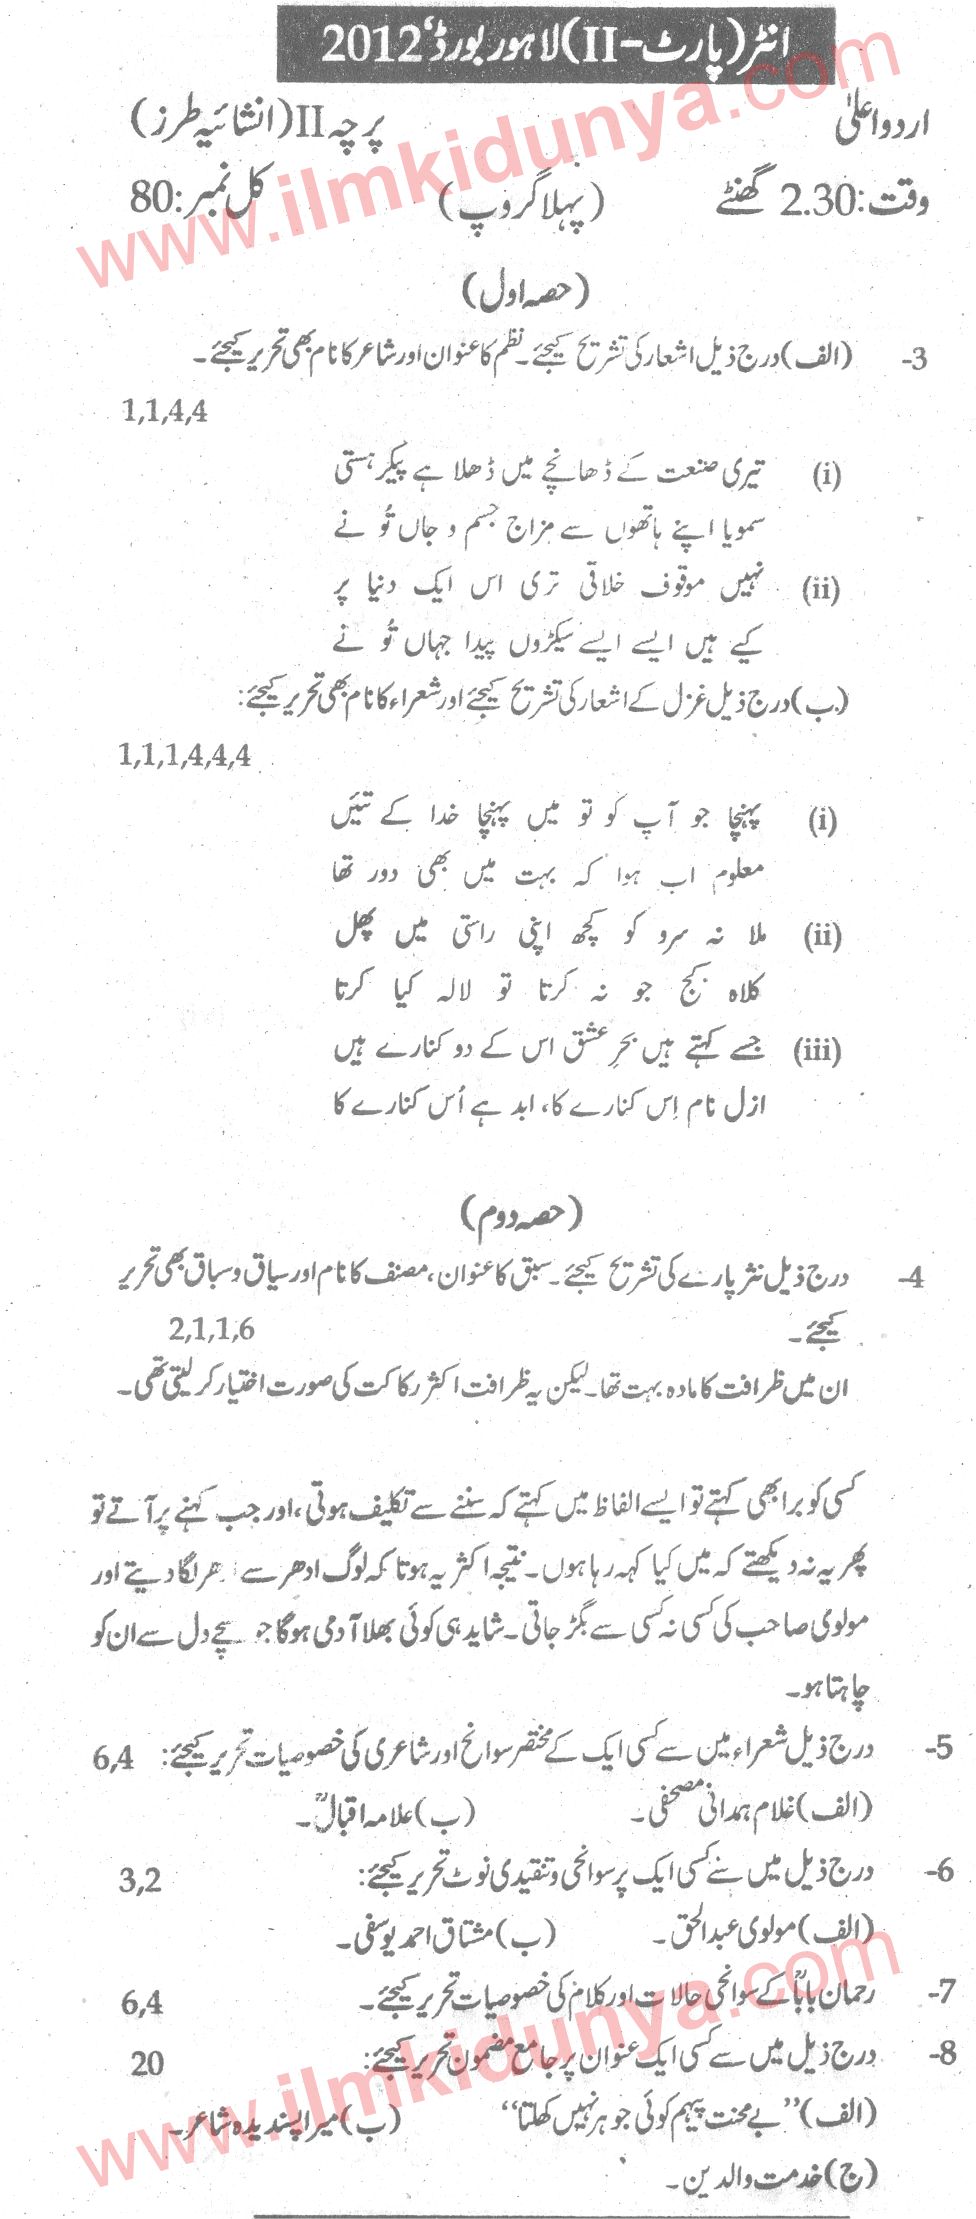 انٹر (پارٹ-II) لاہور بورڈ، 2012
اردو اعلیٰ پرچہ II (انشائیہ طرز)
وقت: 2.30 گھنٹے (پہلا گروپ) کل نمبر: 80
(حصہ اول)
3- (الف) درج ذیل اشعار کی تشریح کیجئے۔ نظم کا عنوان اور شاعر کا نام بھی تحریر کیجئے۔
1,1,4,4
(i) تیری صنعت کے ڈھانچے میں ڈھلا ہے پیکر ہستی
سمویا اپنے ہاتھوں سے مزاج جسم و جاں تُو نے
(ii) نہیں موقوف خلاقی تری اس ایک دنیا پر
کیے ہیں ایسے ایسے سیکڑوں پیدا جہاں تُو نے
(ب) درج ذیل غزل کے اشعار کی تشریح کیجئے اور شعراء کا نام بھی تحریر کیجئے:
1,1,1,4,4,4
(i) پہنچا جو آپ کو تو میں پہنچا خدا کے تئیں
معلوم اب ہوا کہ بہت میں بھی دور تھا
(ii) ملا نہ سرو کو کچھ اپنی راستی میں پھل
کلاہ کج جو نہ کرتا تو لالہ کیا کرتا
(iii) جسے کہتے ہیں بحرِ عشق اس کے دو کنارے ہیں
ازل نام اِس کنارے کا، ابد ہے اُس کنارے کا
(حصہ دوم)
4- درج ذیل نثر پارے کی تشریح کیجئے۔ سبق کا عنوان، مصنف کا نام اور سیاق و سباق بھی تحریر
کیجئے۔ 2,1,1,6
ان میں ظرافت کا مادہ بہت تھا۔ لیکن یہ ظرافت اکثر رکاکت کی صورت اختیار کر لیتی تھی۔
کسی کو برا بھی کہتے تو ایسے الفاظ میں کہتے کہ سننے سے تکلیف ہوتی، اور جب کہنے پر آتے تو
پھر یہ نہ دیکھتے کہ میں کیا کہہ رہا ہوں۔ نتیجہ اکثر یہ ہوتا کہ لوگ ادھر سے لگا دیتے اور
مولوی صاحب کی کسی نہ کسی سے بگڑ جاتی۔ شاید ہی کوئی بھلا آدمی ہوگا جو سچے دل سے ان کو
چاہتا ہو۔
5- درج ذیل شعراء مین سے کسی ایک کے مختصر سوانح اور شاعری کی خصوصیات تحریر کیجئے: 6,4
(الف) غلام ہمدانی مصحفی۔ (ب) علامہ اقبالؒ۔
6- درج ذیل میں سے کسی ایک پر سوانحی و تنقیدی نوٹ تحریر کیجئے: 3,2
(الف) مولوی عبدالحق۔ (ب) مشتاق احمد یوسفی۔
7- رحمان باباؒ کے سوانحی حالات اور کلام کی خصوصیات تحریر کیجئے۔ 6,4
8- درج ذیل میں سے کسی ایک عنوان پر جامع مضمون تحریر کیجئے: 20
(الف) ”بے محنت پیہم کوئی جوہر نہیں کھلتا“ (ب) میرا پسندیدہ شاعر۔
(ج) خدمت والدین۔
www.ilmkidunya.com
www.ilmkidunya.com